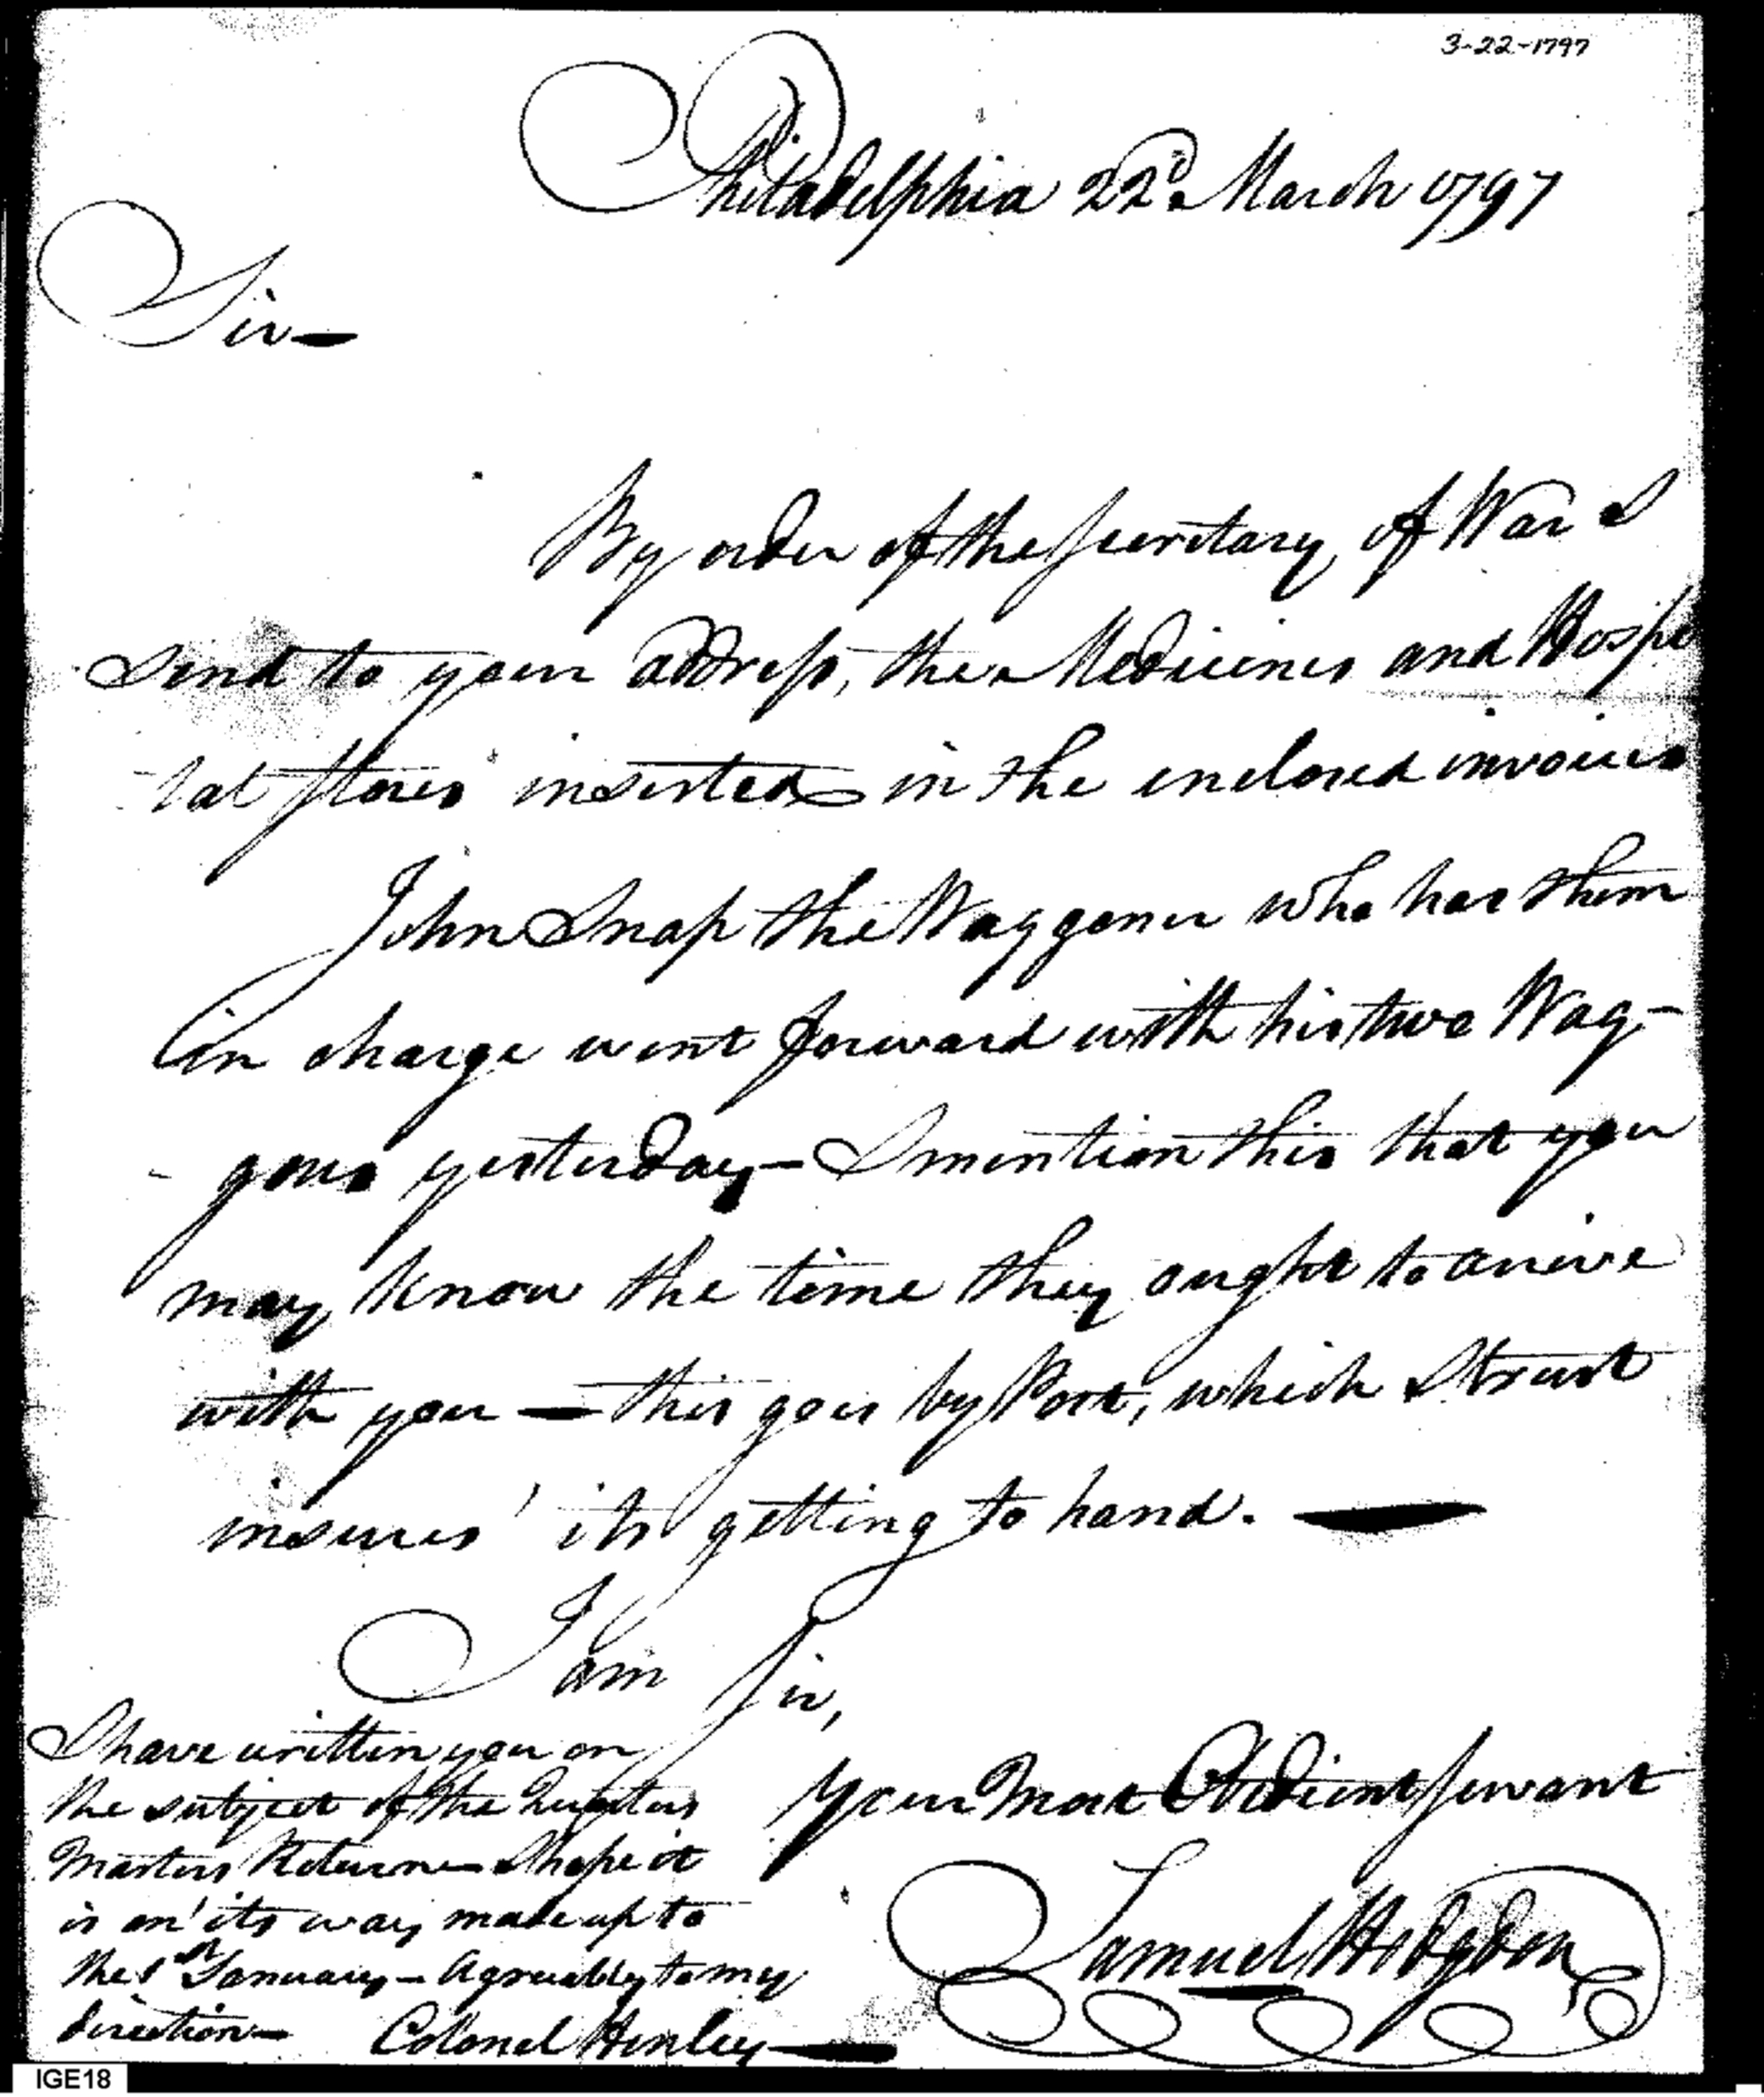 3-22-1797
Philadelphia 22d. March 1797
Sir—
By order of the Secretary of War I
send to your address, the Medicines and Hospi
tal Stores inserted in the enclosed invoices
John Snap the Waggoner who has them
in charge went forward with his two Wag-
gons yesterday — I mention this that you
may know the time they ought to arrive
with you — this goes by Post, which I trust
insures its getting to hand. —
I am Sir,
Your Most Obedient Servant
Samuel Hodgdon
I have written you on
the subject of the Quarter
Masters Return — I hope it
is on its way made up to
the 1st January — Agreeably to my
direction —
Colonel Henley —
IGE18